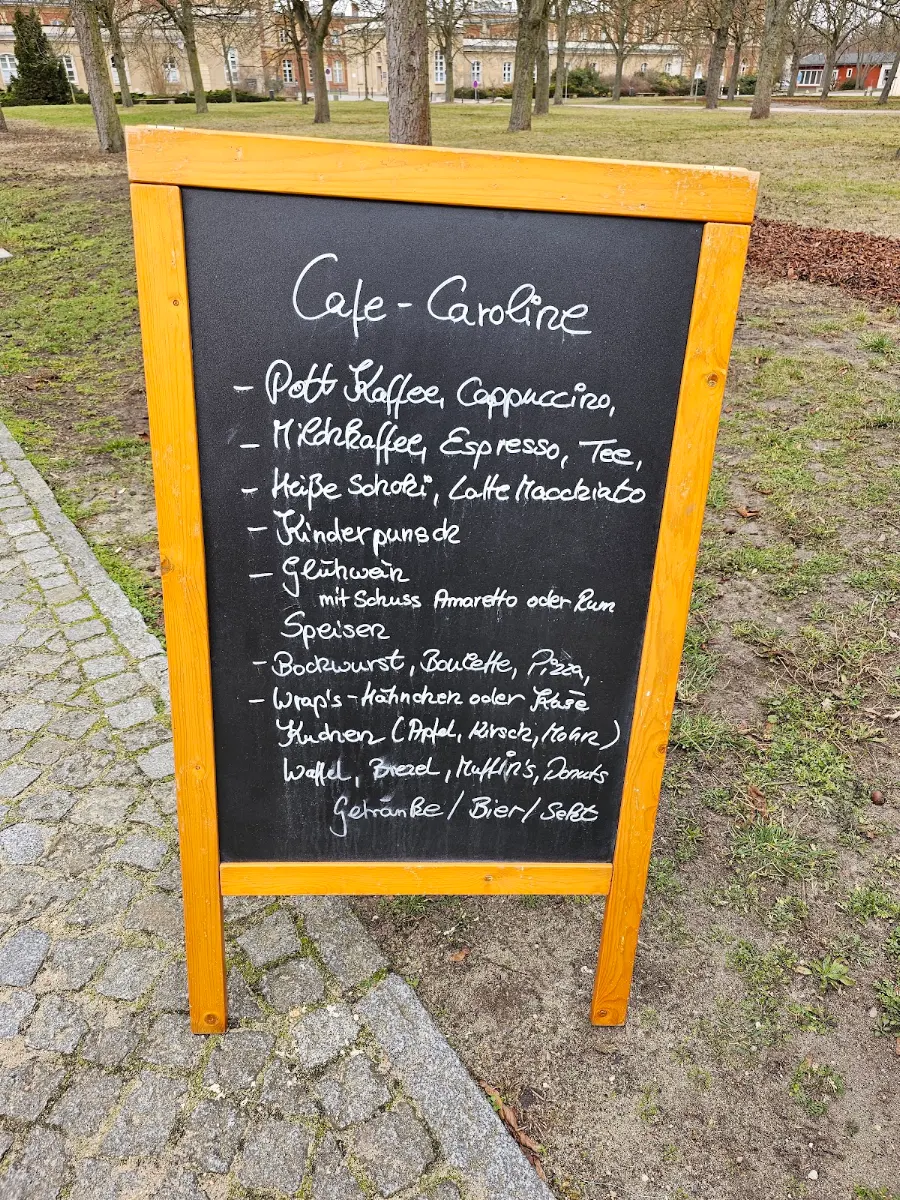 Cafe - Caroline
- Pott Kaffee, Cappuccino,
- Milchkaffee, Espresso, Tee,
- Heiße Schoki, Latte Macchiato
- Kinderpunsch
- Glühwein
mit Schuss Amaretto oder Rum
Speisen
- Bockwurst, Boulette, Pizza,
- Wrap's - Hähnchen oder Käse
Kuchen (Apfel, Kirsch, Mohn)
Waffel, Brezel, Muffin's, Donuts
Getränke / Bier / Sekt